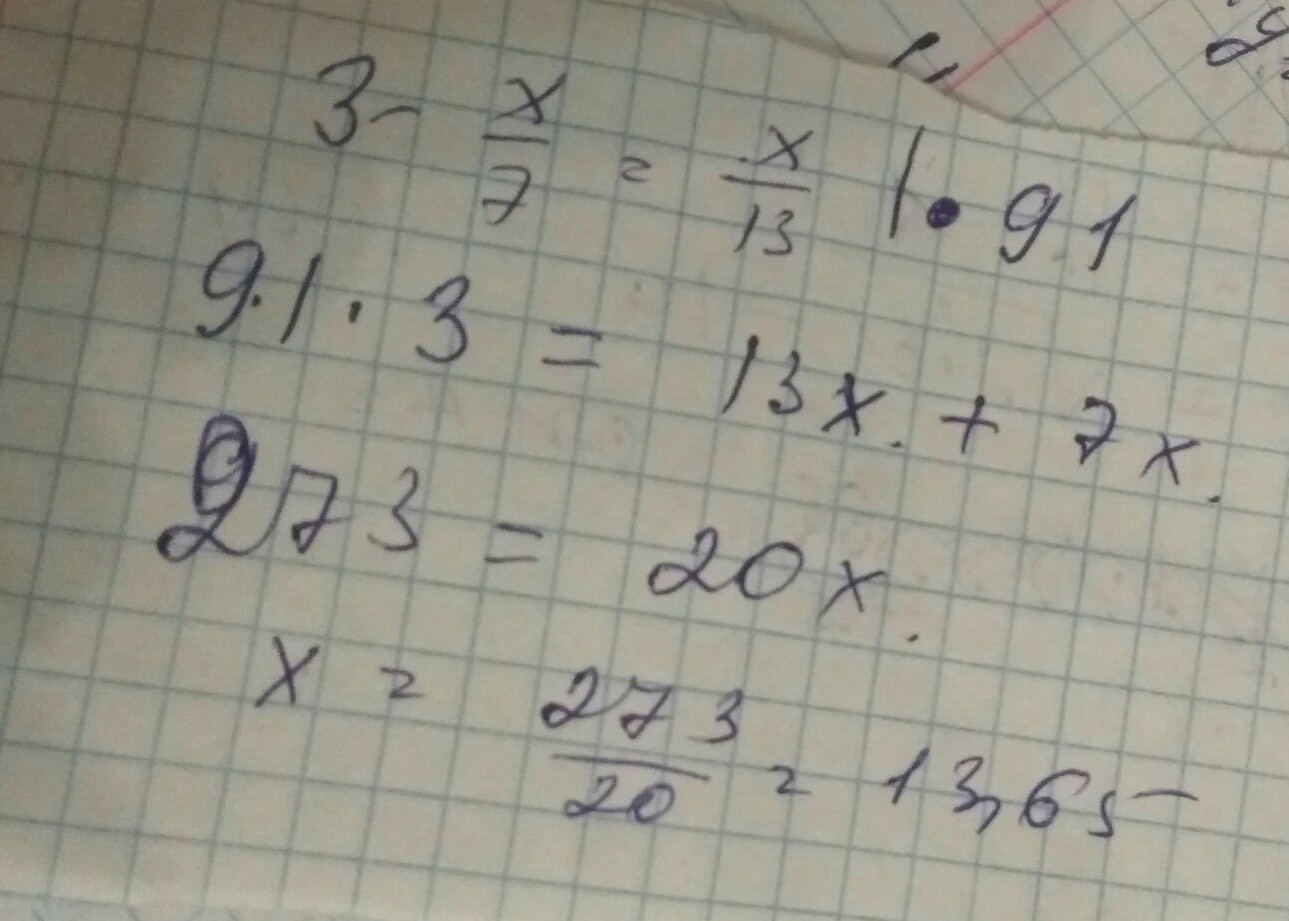 3 - x/7 = x/13 | • 91
91 · 3 = 13x + 7x.
273 = 20x.
x = 273/20 = 13,65